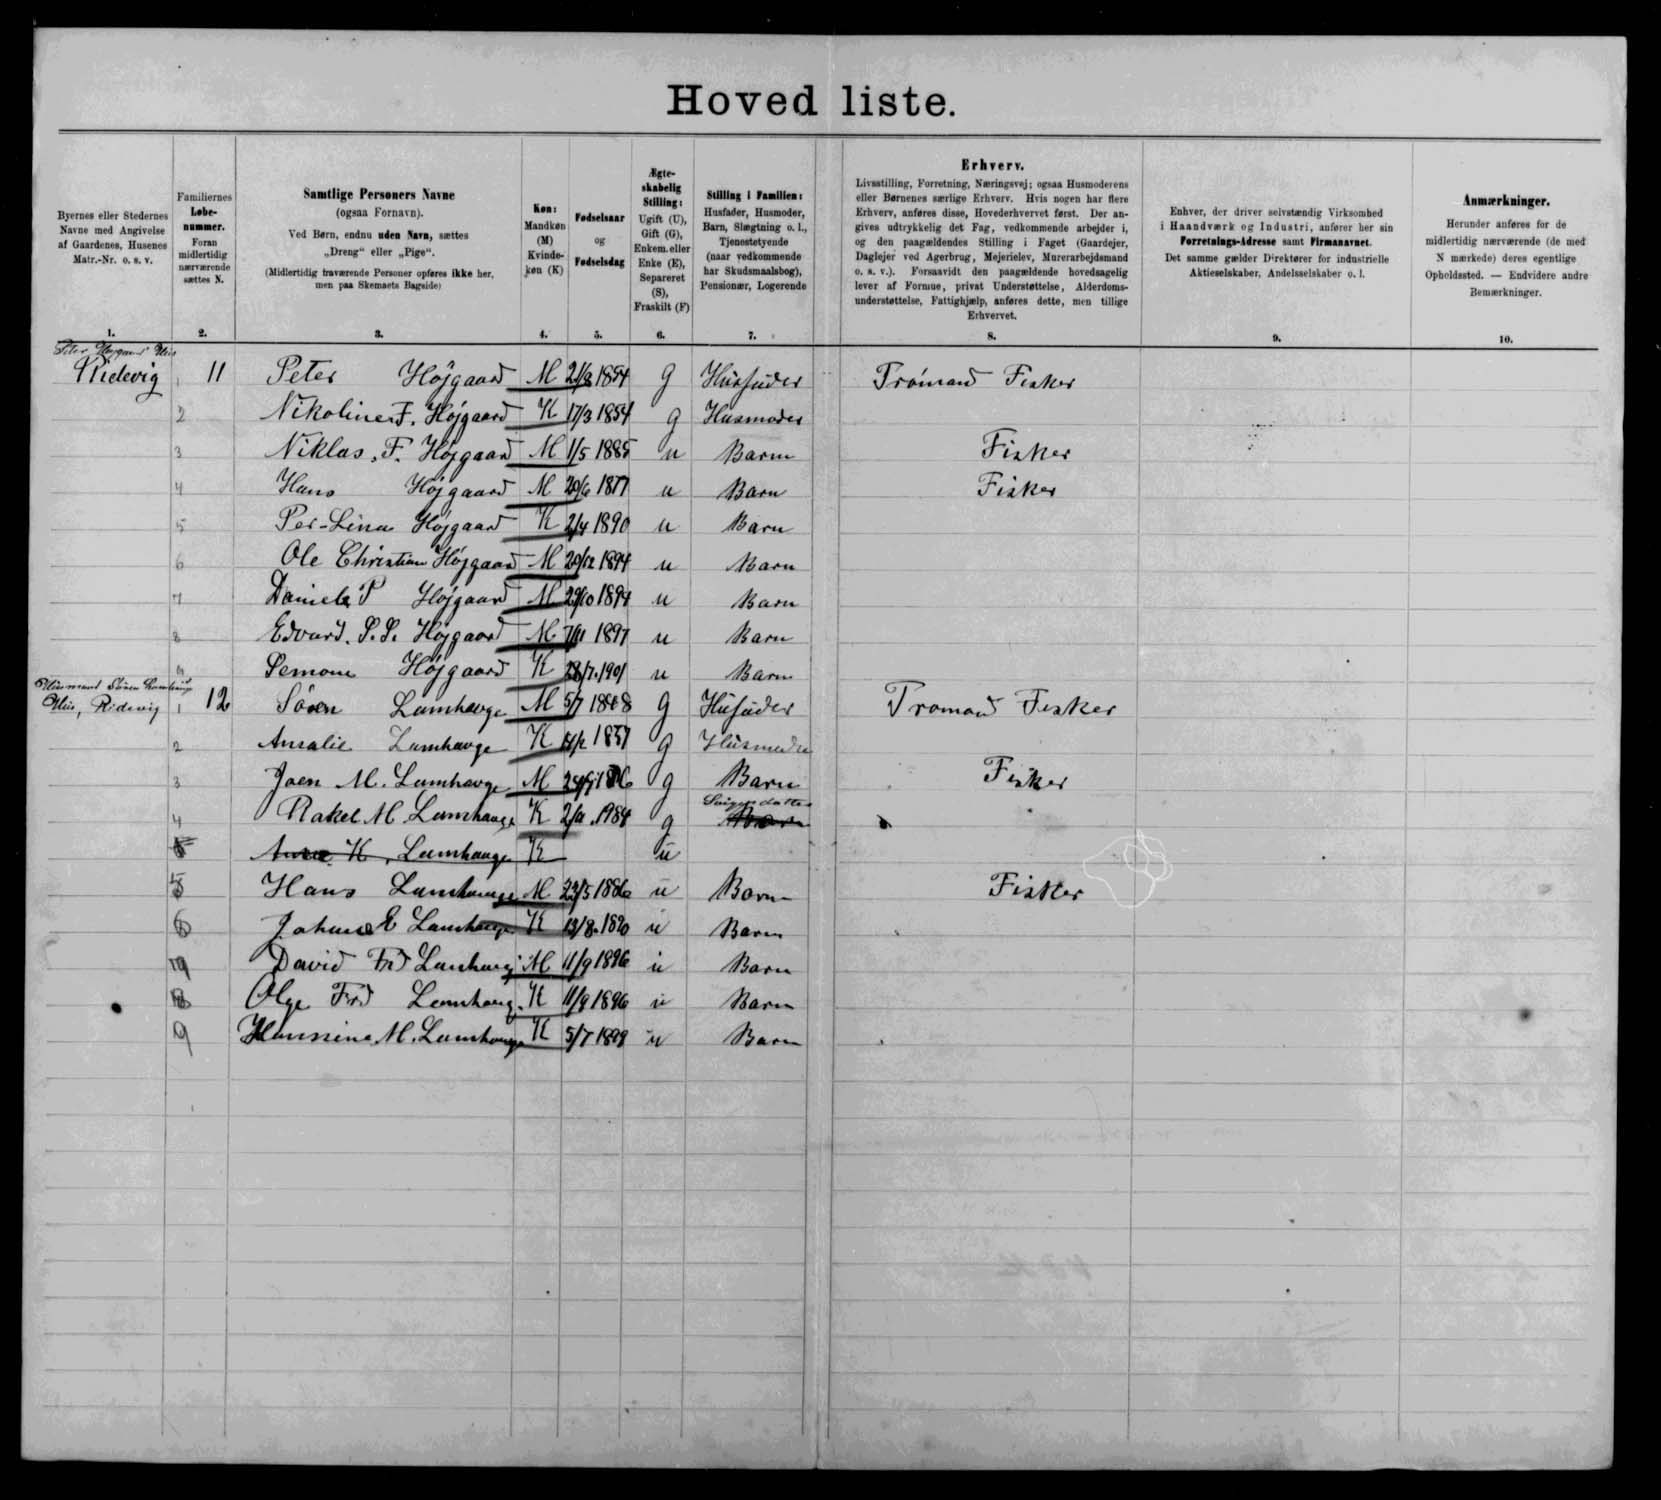 Hoved liste.
Byernes eller Stedernes Navne med Angivelse af Gaardenes, Husenes Matr.-Nr. o. s. v.
Familiernes Løbenummer. Foran midlertidig nærværende sættes N.
Samtlige Personers Navne
(ogsaa Fornavn).
Ved Børn, endnu uden Navn, sættes
„Dreng“ eller „Pige“.
(Midlertidig fraværende Personer opføres ikke her,
men paa Skemaets Bagside)
Køn:
Mandkøn
(M)
Kvinde-
køn (K)
Fødselsaar
og
Fødselsdag
Ægte-
skabelig
Stilling:
Ugift (U),
Gift (G),
Enkem. eller
Enke (E),
Separeret
(S),
Fraskilt (F)
Stilling i Familien:
Husfader, Husmoder,
Barn, Slægtning o. l.,
Tjenestetyende
(naar vedkommende
har Skudsmaalsbog),
Pensionær, Logerende
Erhverv.
Livsstilling, Forretning, Næringsvej; ogsaa Husmoderens
eller Børnenes særlige Erhverv. Hvis nogen har flere
Erhverv, anføres disse, Hovederhvervet først. Der an-
gives udtrykkelig det Fag, vedkommende arbejder i,
og den paagældendes Stilling i Faget (Gaardejer,
Daglejer ved Agerbrug, Mejerielev, Murerarbejdsmand
o. s. v.). Forsaavidt den paagældende hovedsagelig
lever af Formue, privat Understøttelse, Alderdoms-
understøttelse, Fattighjælp, anføres dette, men tillige
Erhvervet.
Enhver, der driver selvstændig Virksomhed
i Haandværk og Industri, anfører her sin
Forretnings-Adresse samt Firmanavnet.
Det samme gælder Direktører for industrielle
Aktieselskaber, Andelsselskaber o. l.
Anmærkninger.
Herunder anføres for de
midlertidig nærværende (de med
N mærkede) deres egentlige
Opholdssted. — Endvidere andre
Bemærkninger.
1. 2. 3. 4. 5. 6. 7. 8. 9. 10.
Peter Højgaards Hus
Ridevig 1 11 Peter Højgaard M 1854 g Husfader Trómand Fisker
2 Nikoline F. Højgaard K 17/3 1854 g Husmoder
3 Niklas. F. Højgaard M 1/5 1885 u Barn Fisker
4 Hans Højgaard M 20/6 1877 u Barn Fisker
5 Per-Lina Højgaard K 2/4 1890 u Barn
6 Ole Christian Højgaard M 20/12 1894 u Barn
7 P Højgaard M 29/10 1894 u Barn
8 Edvard. Højgaard M 1897 u Barn
9 Højgaard K 28/7 1901 u Barn
Husmand Sören
Hus, Ridevig 1 12 Sören Lamhauge M 5/7 1848 g Husfader Tromand Fisker
2 Lamhauge K g Husmoder
3 Joen M. Lamhauge M g Barn Fisker
4 Rakel M. Lamhauge K 2/11 1984 g Svigerdatter Barn
K. Lamhauge K u
5 Hans Lamhauge M 22/5 1886 u Barn Fisker
6 Lamhauge K 13/8 1890 u Barn
7 David Frd Lamhauge M 11/9 1896 u Barn
8 Olga Frd Lamhauge K 11/9 1896 u Barn
9 Hansine M. Lamhauge K 5/7 u Barn